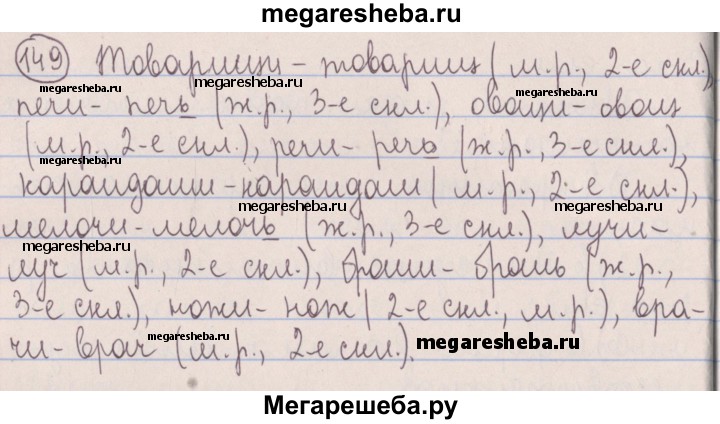 megaresheba.ru
149 Товарищи - товарищ (м.р., 2-е скл.),
megaresheba.ru
megaresheba.ru
печи - печь (ж.р., 3-е скл.), овощи - овощ
megaresheba.ru
(м.р., 2-е скл.), речи - речь (ж.р., 3-е скл.),
megaresheba.ru
карандаши - карандаш (м.р., 2-е скл.),
megaresheba.ru
megaresheba.ru
мелочи - мелочь (ж.р., 3-е скл.), лучи -
megaresheba.ru
луч (м.р., 2-е скл.), броши - брошь (ж.р.,
3-е скл.), ножи - нож (2-е скл., м.р.), вра-
megaresheba.ru
чи - врач (м.р., 2-е скл.).
megaresheba.ru
Мегарешеба.ру